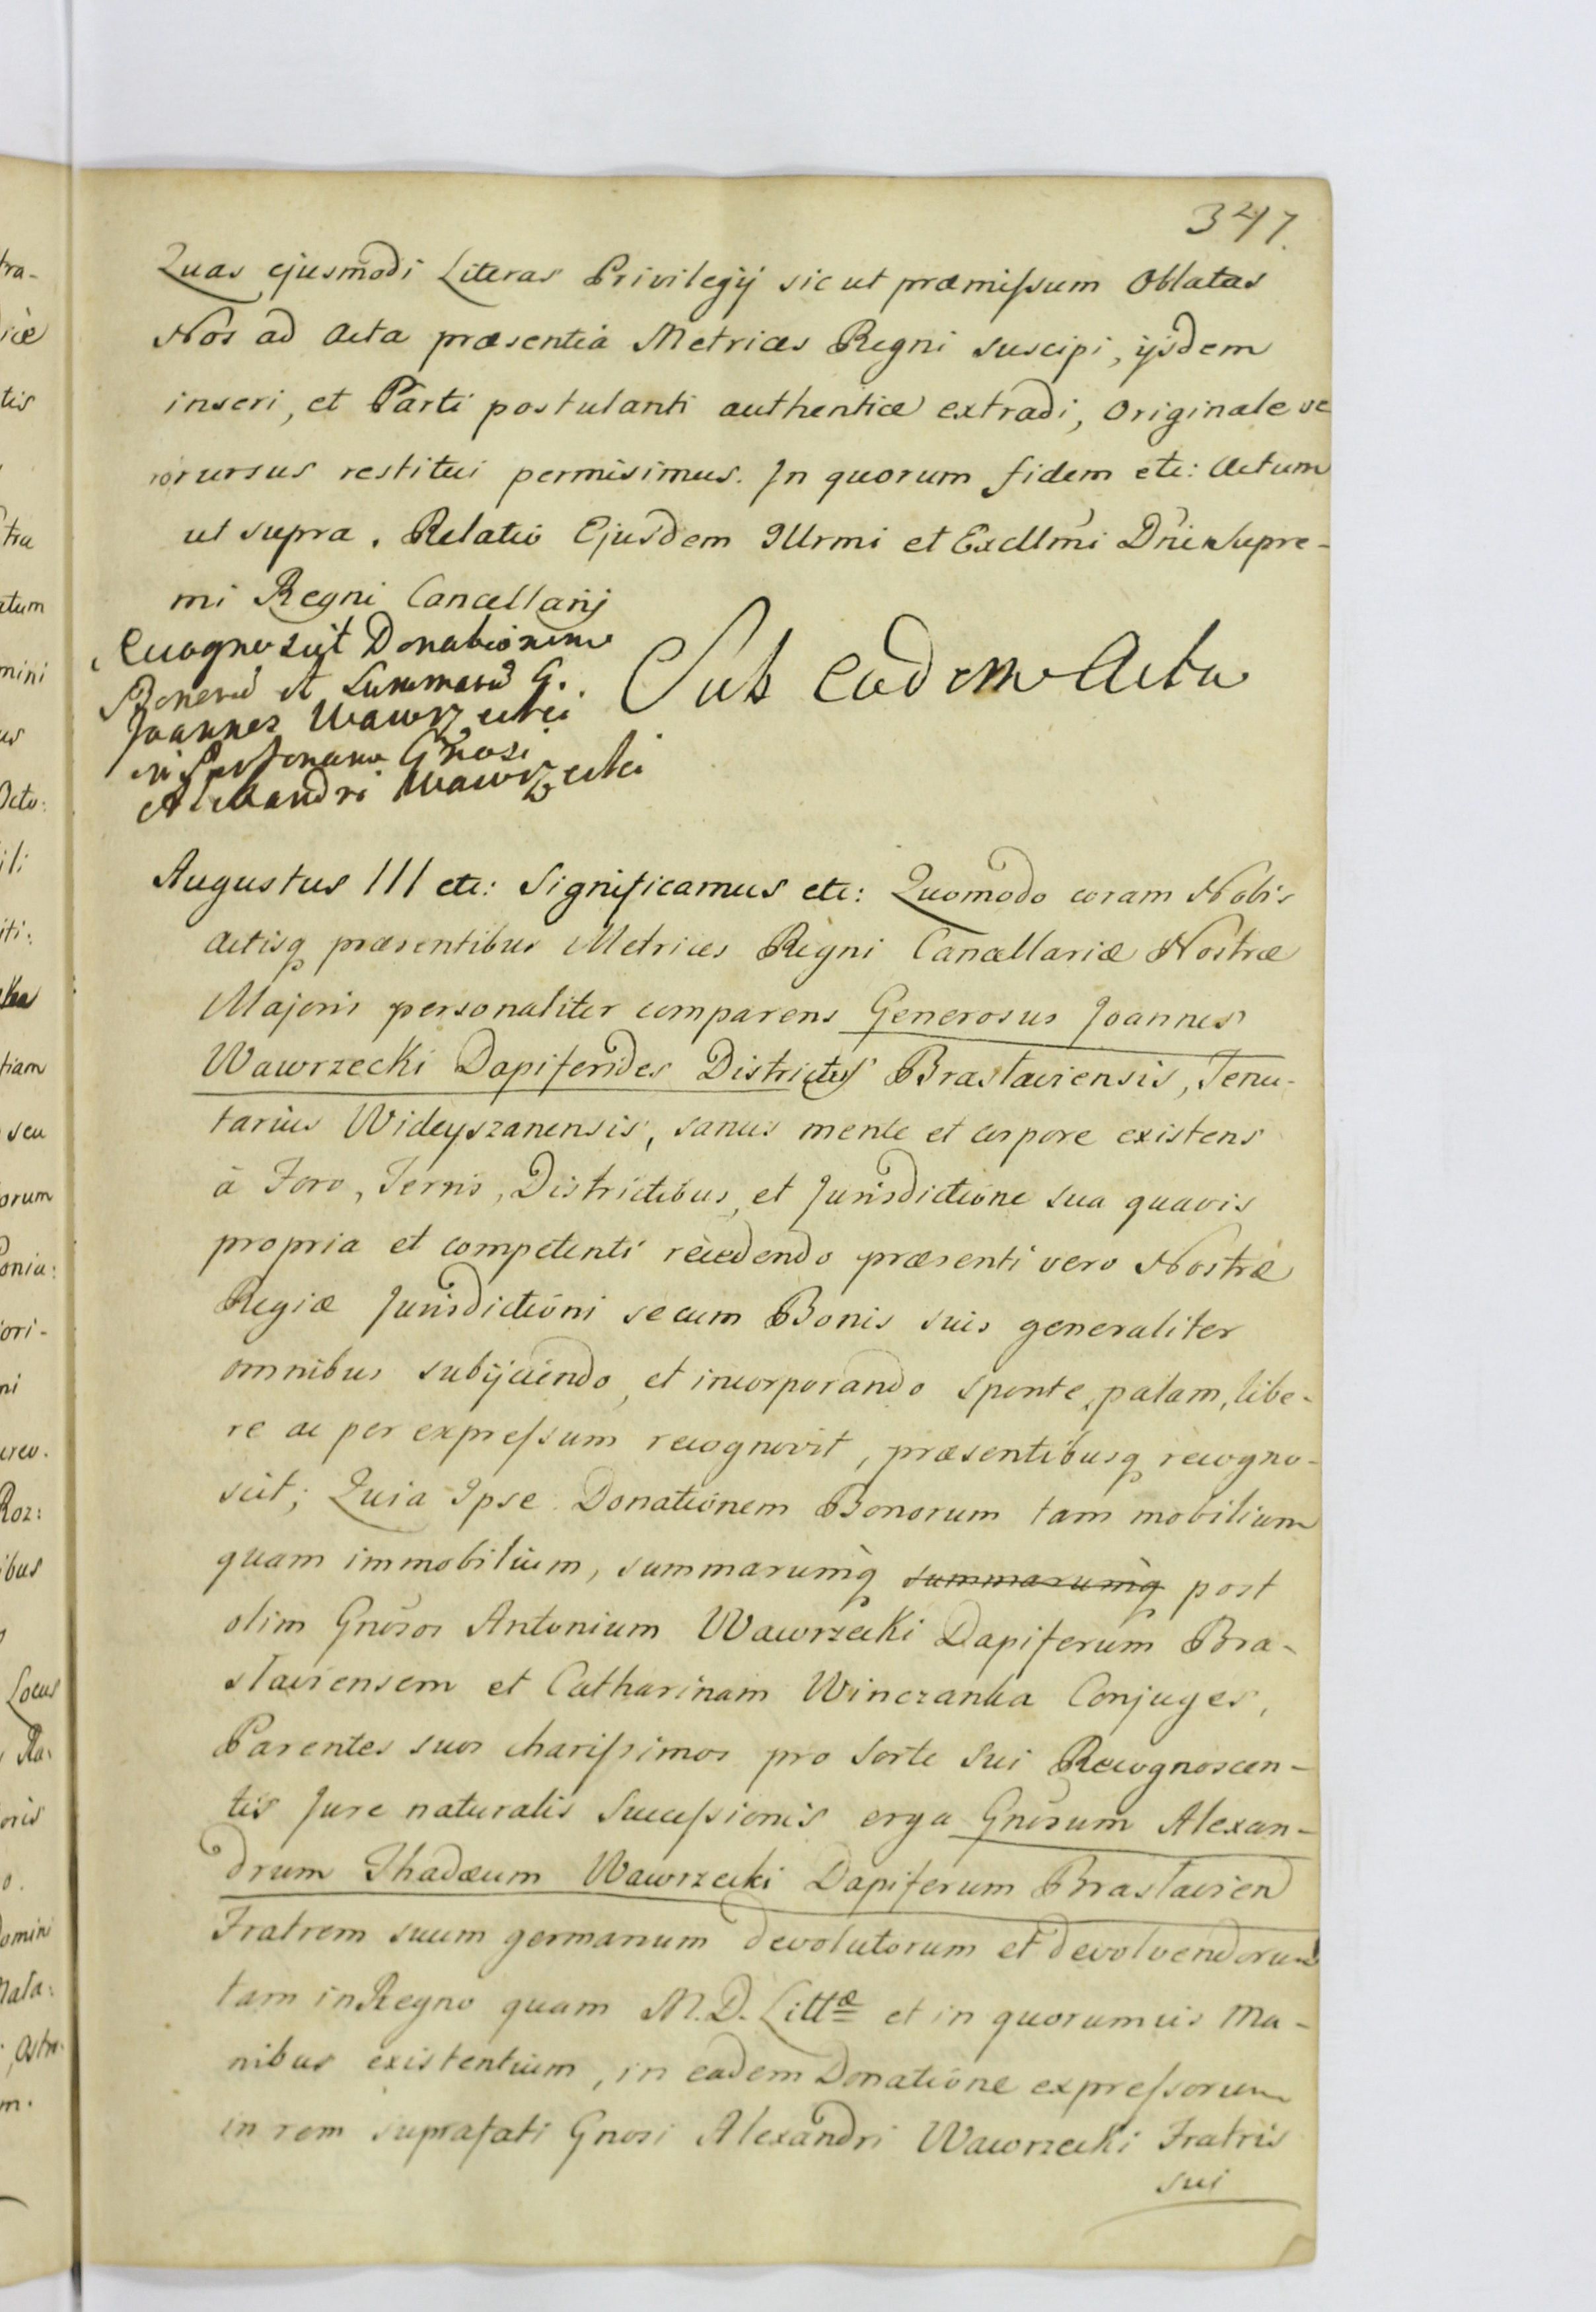 347.
Quas ejusmodi Literas Privilegij sicut præmissum Oblatas
Nos ad Acta præsentia Metrices Regni suscipi, ijsdem
inseri, et Parti postulanti authenticè extradi, Originale ve
rorursus restitui permisimus. In quorum fidem etc: Actum
ut supra. Relatio Ejusdem Illrmi et Excllmi Dni Supre-
mi Regni Cancellarij
Recognoscit Donationem
Bonorū et Summarū G.
Joannes Wawrzecki
in Personam Gnosi
Alexandri Wawrzecki
Sub eadem Acta
Augustus III etc: Significamus etc: Quomodo coram Nobis
Actisq præsentibus Metrices Regni Cancellariæ Nostræ
Majoris personaliter comparens Generosus Joannes
Wawrzecki Dapiferides Districtus Braslaviensis, Tenu-
tarius Wideyszanensis, sanus mente et corpore existens
à Foro, Terris, Districtibus, et Jurisdictione sua quavis
propria et competenti recedendo præsenti vero Nostræ
Regiæ Jurisdictioni se cum Bonis suis generaliter
omnibus subijciendo, et incorporando sponte, palam, libe-
re ac per expressum recognovit, præsentibusq recogno-
scit; Quia Ipse Donationem Bonorum tam mobilium
quam immobilium, summarumq̀ summarumq̀ post
olim Gnosos Antonium Wawrzecki Dapiferum Bra-
slaviensem et Catharinam Winczanka Conjuges,
Parentes suos charissimos pro Sorte Sui Recognoscen-
tis Jure naturalis Successionis erga Gnosum Alexan-
drum Thadæum Wawrzecki Dapiferum Braslavien
Fratrem suum germanum devolutorum et devolvendorum
tam in Regno quam M.D. Littæ et in quorumvis Ma-
nibus existentium, in eadem Donatione expressorum
in rem suprafati Gnosi Alexandri Wawrzecki Fratris
sui